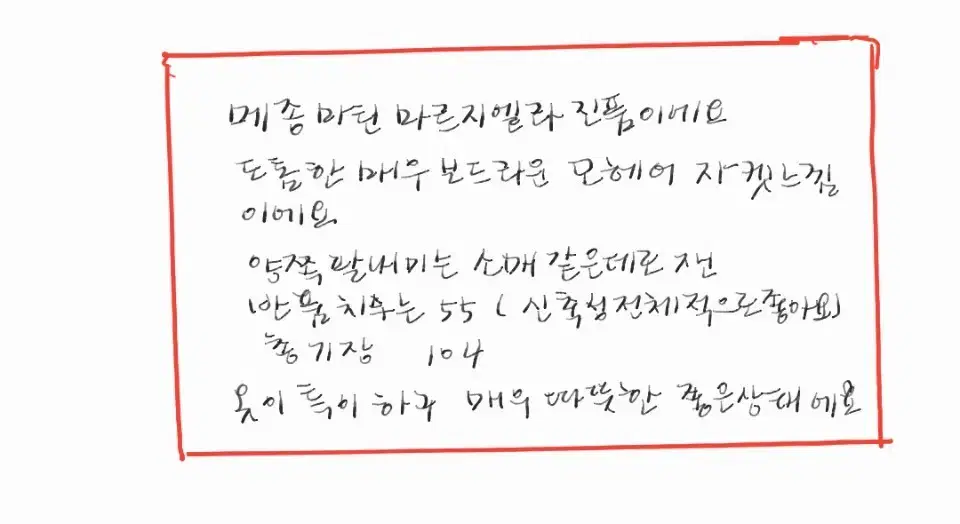 메종 마틴 마르지엘라 진품이에요
도톰한 매우 보드라운 모헤어 자켓느낌
이에요
양쪽팔내미는 소매 같은데로 잰
반품치수는 55 ( 신축성전체적으로좋아요)
총기장 104
옷이 특이하구 매우 따뜻한 좋은상태에요